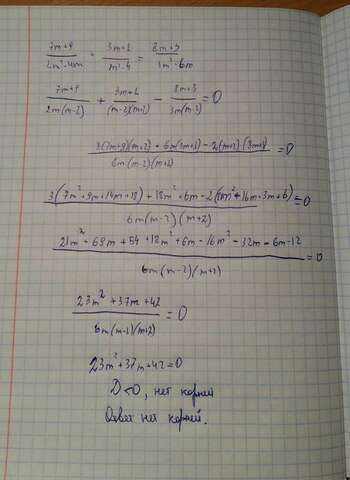 7m+9/2m²-4m + 3m+1/m²-4 = 8m+3/3m²-6m
7m+9/2m(m-2) + 3m+1/(m-2)(m+2) - 8m+3/3m(m-2) = 0
3(7m+9)(m+2) + 6m(3m+1) - 2(m+2)(8m+3)/6m(m-2)(m+2) = 0
3(7m²+9m+14m+18)+18m²+6m-2(8m²+16m+3m+6)/6m(m-2)(m+2) = 0
21m²+69m+54+18m²+6m-16m²-32m-6m-12/6m(m-2)(m+2) = 0
23m²+37m+42/6m(m-2)(m+2) = 0
23m²+37m+42=0
D<0, нет корней
Ответ нет корней.